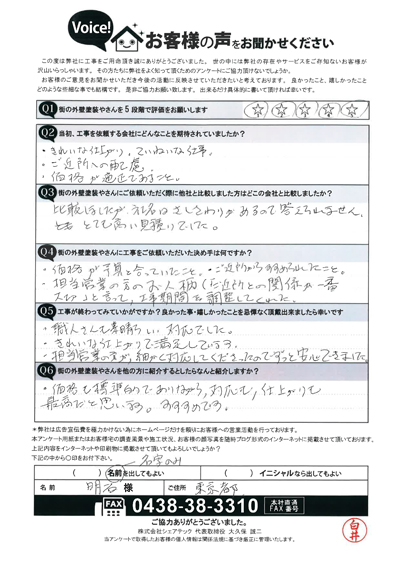 Voice! お客様の声をお聞かせください
この度は弊社に工事をご用命頂き誠にありがとうございました。世の中には弊社の存在やサービスをご存知ないお客様が
沢山いらっしゃいます。その方たちに弊社をよく知って頂くためのアンケートにご協力頂けないでしょうか。
お客様のご意見をお聞かせいただき今後の活動に反映させていただきたいと考えております。良かったこと、嬉しかったこと
どのような些細な事でも結構です。是非ご協力お願い致します。出来るだけ具体的に書いて頂ければ幸いです。
Q1 街の外壁塗装やさんを5段階で評価をお願いします ☆ ☆ ☆ ☆ ☆
Q2 当初、工事を依頼する会社にどんなことを期待されていましたか?
・きれいな仕上がり、ていねいな仕事。
・ご近所への配慮。
・価格が適正であること。
Q3 街の外壁塗装やさんにご依頼いただく際に他社と比較しました方はどこの会社と比較しましたか?
比較はしたが、社名はさしさわりがあるので答えられません。
とても高い見積りでした。
Q4 街の外壁塗装やさんに工事をご依頼いただいた決め手は何ですか?
・価格が予算と合っていたこと。・ご近所からすすめられたこと。
・担当営業の方のお人柄(ご近所との関係が一番
大切)と言って、工事期間を調整してくれた。
Q5 工事が終わってみていかがですか?良かった事・嬉しかったことを忌憚なく頂戴出来ましたら幸いです
・職人さんも素晴しい対応でした。
・きれいな仕上がりで満足しています。
・担当営業の方が、細かく対応してくださったのでずっと安心できました。
Q6 街の外壁塗装やさんを他の方に紹介するとしたらなんと紹介しますか?
・価格も標準的でありながら、対応も、仕上がりも
最高だと思います。おすすめです。
*弊社は広告宣伝費を極力かけない為にホームページだけを頼りにお客様への営業活動を行っております。
本アンケート用紙またはお客様宅の調査風景や施工状況、お客様の顔写真を随時ブログ形式のインターネットに掲載させて頂いております。
上記内容をインターネットや印刷物に掲載させて頂いてもよろしいでしょうか?
下記の中から〇印をお付下さい。
名字のみ
( )名前を出してもよい ( )イニシャルなら出してもよい
名前 明石 様 ご住所 東京都
FAX 0438-38-3310 本社直通 FAX番号
ご協力ありがとうございました。
株式会社シェアテック 代表取締役 大久保 誠二
当アンケートで取得したお客様の個人情報は関係法規に基づき厳正に管理いたします。
白井